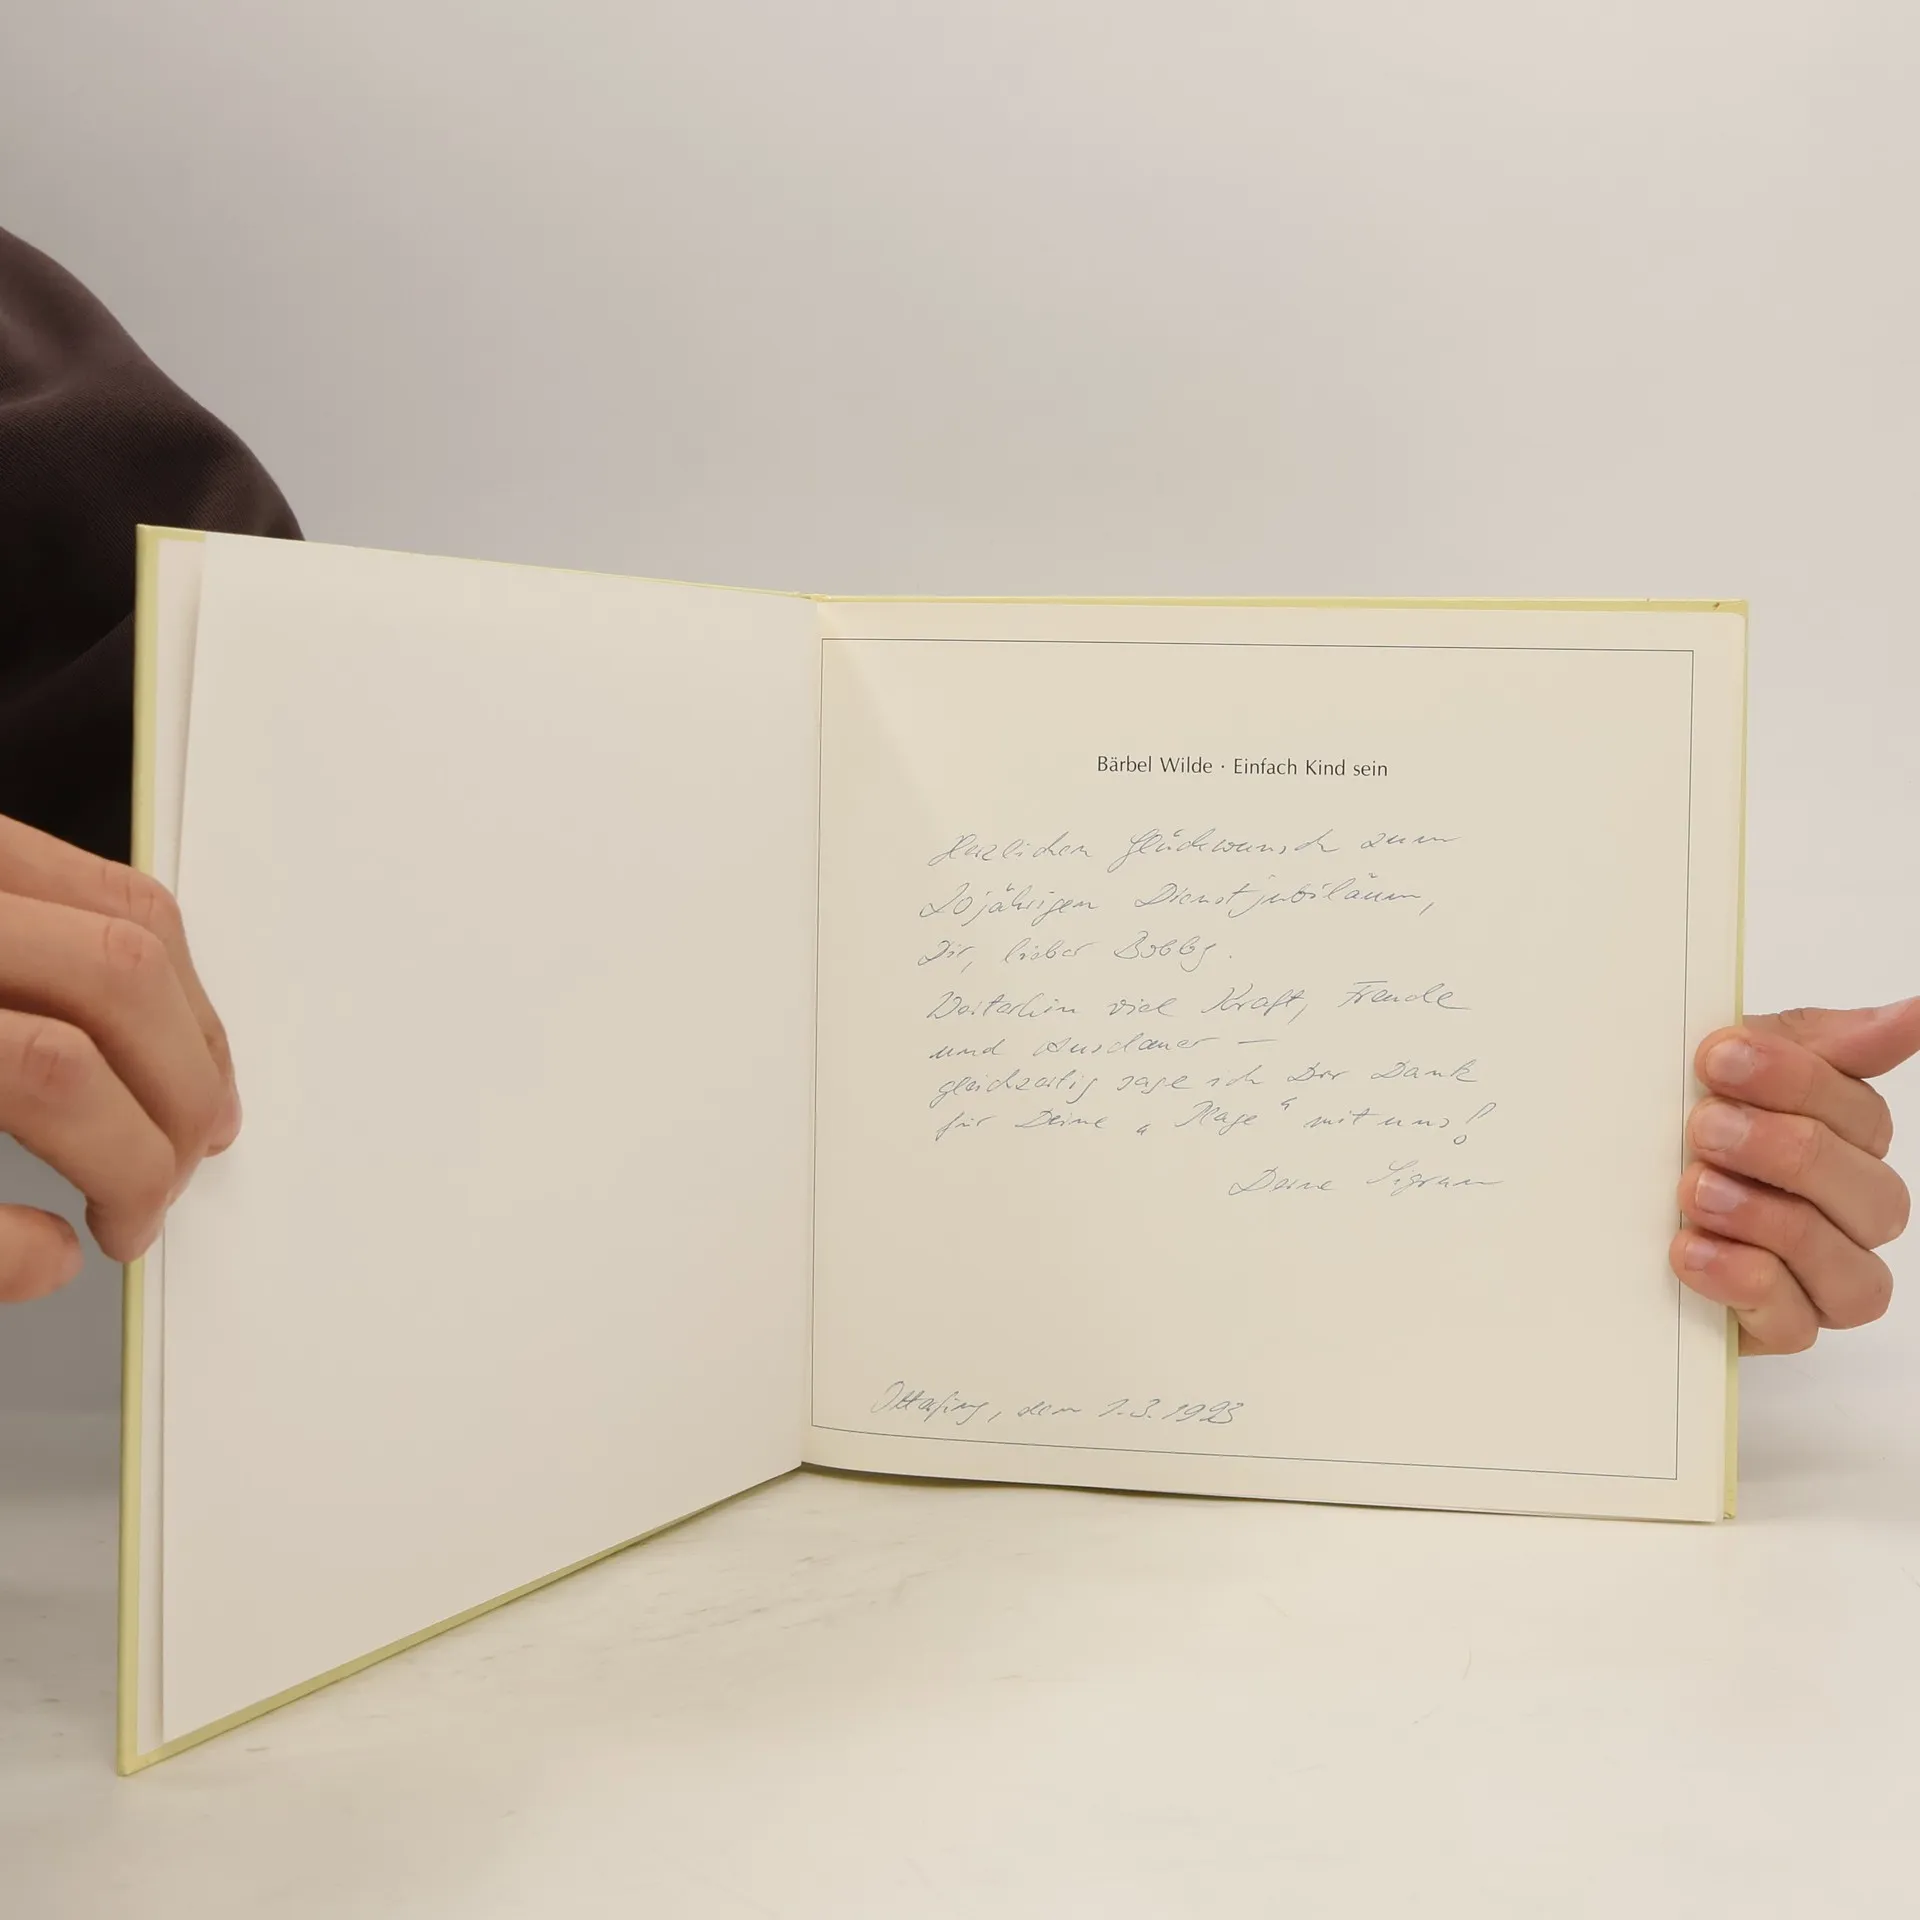 Bärbel Wilde · Einfach Kind sein
Herzlichen Glückwunsch zum
20jährigen Dienstjubiläum,
Dir, lieber Bobby.
Weiterhin viel Kraft, Freude
und Ausdauer –
gleichzeitig sage ich Dir Dank
für Deine „Plage“ mit uns!
Deine Sigrun
den 1.3.1993